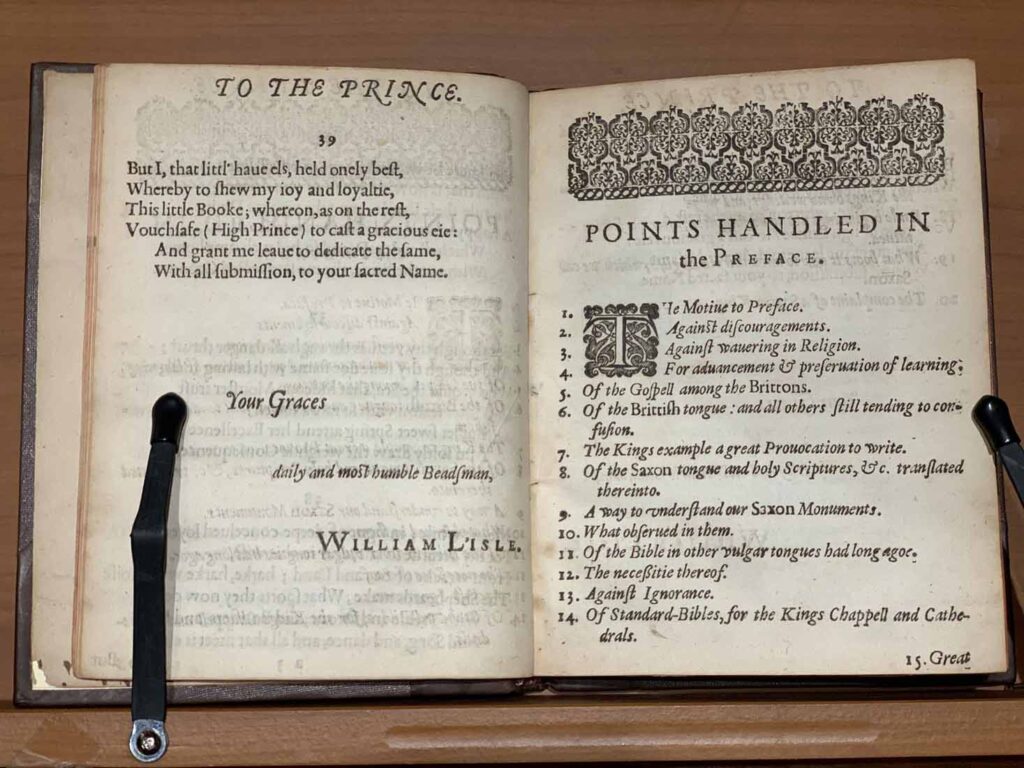 TO THE PRINCE.
39
But I, that littl' haue els, held onely beſt,
Whereby to ſhew my ioy and loyaltie,
This little Booke; whereon, as on the reſt,
Vouchſafe (High Prince) to caſt a gracious eie:
And grant me leaue to dedicate the ſame,
With all ſubmiſſion, to your ſacred Name.
Your Graces
daily and moſt humble Beadſman,
WILLIAM L'ISLE.
POINTS HANDLED IN
the PREFACE.
1. THe Motiue to Preface.
2. Againſt diſcouragements.
3. Againſt wauering in Religion.
4. For aduancement & preſeruation of learning.
5. Of the Goſpell among the Brittons.
6. Of the Brittiſh tongue: and all others ſtill tending to con-
fuſion.
7. The Kings example a great Prouocation to write.
8. Of the Saxon tongue and holy Scriptures, &c. tranſlated
thereinto.
9. A way to vnderſtand our Saxon Monuments.
10. What obſerued in them.
11. Of the Bible in other vulgar tongues had long agoe.
12. The neceſſitie thereof.
13. Againſt Ignorance.
14. Of Standard-Bibles, for the Kings Chappell and Cathe-
drals.
15. Great